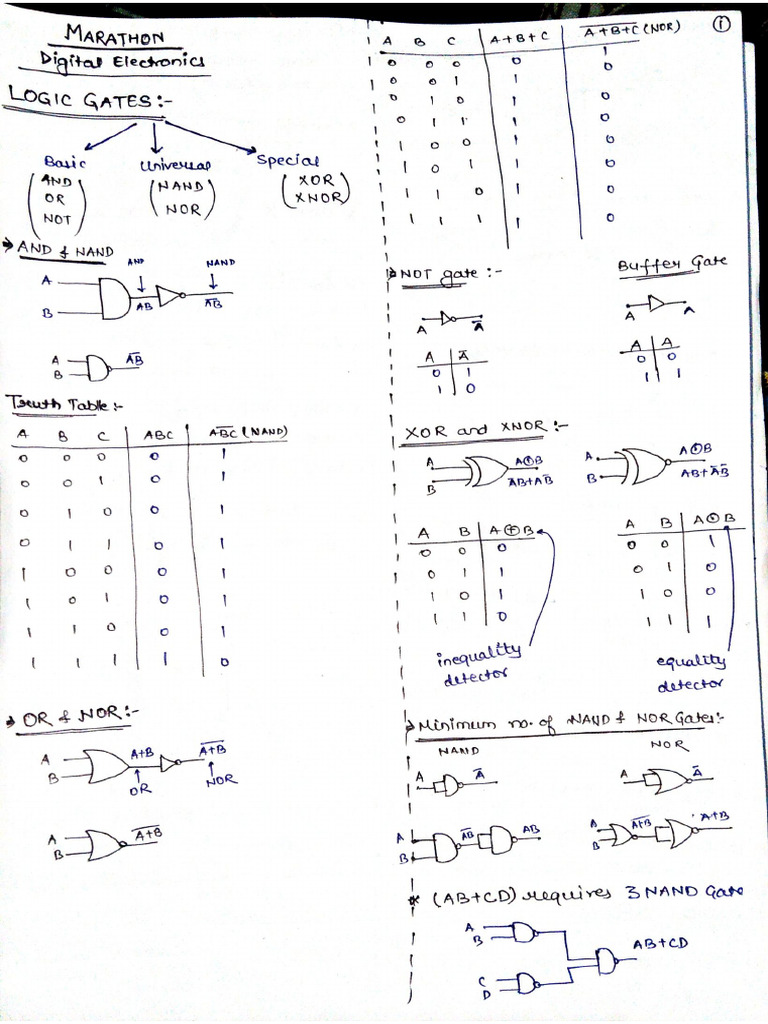 MARATHON
Digital Electronics
LOGIC GATES:-
Basic Universal Special
(AND OR NOT) (NAND NOR) (XOR XNOR)
→ AND & NAND
AND NAND
A
B
AB A̅B̅
A
B
A̅B̅
Truth Table:-
A B C ABC A̅B̅C̅ (NAND)
0 0 0 0 1
0 0 1 0 1
0 1 0 0 1
0 1 1 0 1
1 0 0 0 1
1 0 1 0 1
1 1 0 0 1
1 1 1 1 0
→ OR & NOR:-
A
B
A+B A̅+̅B̅
OR NOR
A
B
A̅+̅B̅
①
A B C A+B+C A̅+̅B̅+̅C̅ (NOR)
0 0 0 0 1
0 0 1 1 0
0 1 0 1 0
0 1 1 1 0
1 0 0 1 0
1 0 1 1 0
1 1 0 1 0
1 1 1 1 0
NOT gate:-
A A̅
A A̅
0 1
1 0
Buffer Gate
A A
A A
0 0
1 1
XOR and XNOR:-
A
B
A⊕B
A̅B+AB̅
A
B
A⊙B
AB+A̅B̅
A B A⊕B
0 0 0
0 1 1
1 0 1
1 1 0
inequality
detector
A B A⊙B
0 0 1
0 1 0
1 0 0
1 1 1
equality
detector
→ Minimum no. of NAND & NOR Gates:-
NAND NOR
A A̅
A A̅
A
B
A̅B̅ AB
A
B
A̅+̅B̅ A+B
* (AB+CD) requires 3 NAND Gate
A
B
C
D
AB+CD